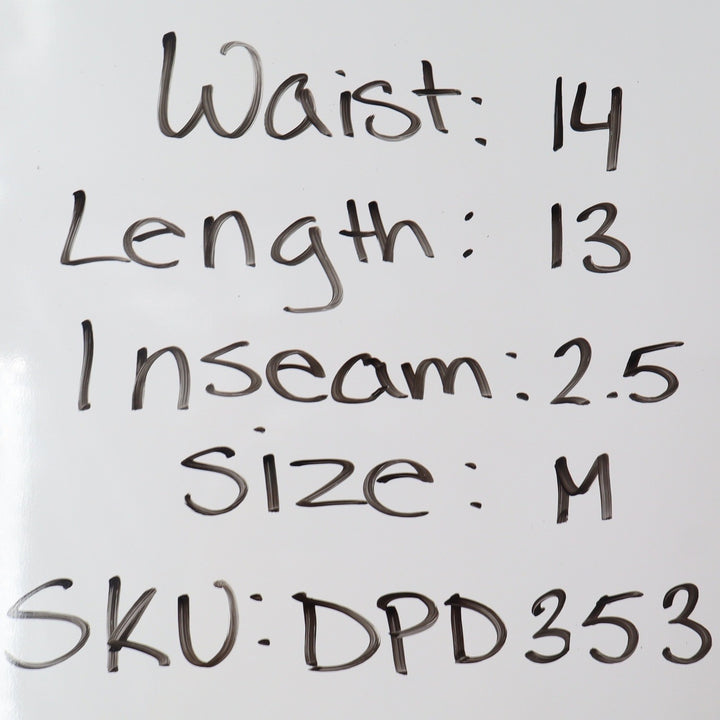 Waist: 14
Length: 13
Inseam: 2.5
Size: M
SKU: DPD353